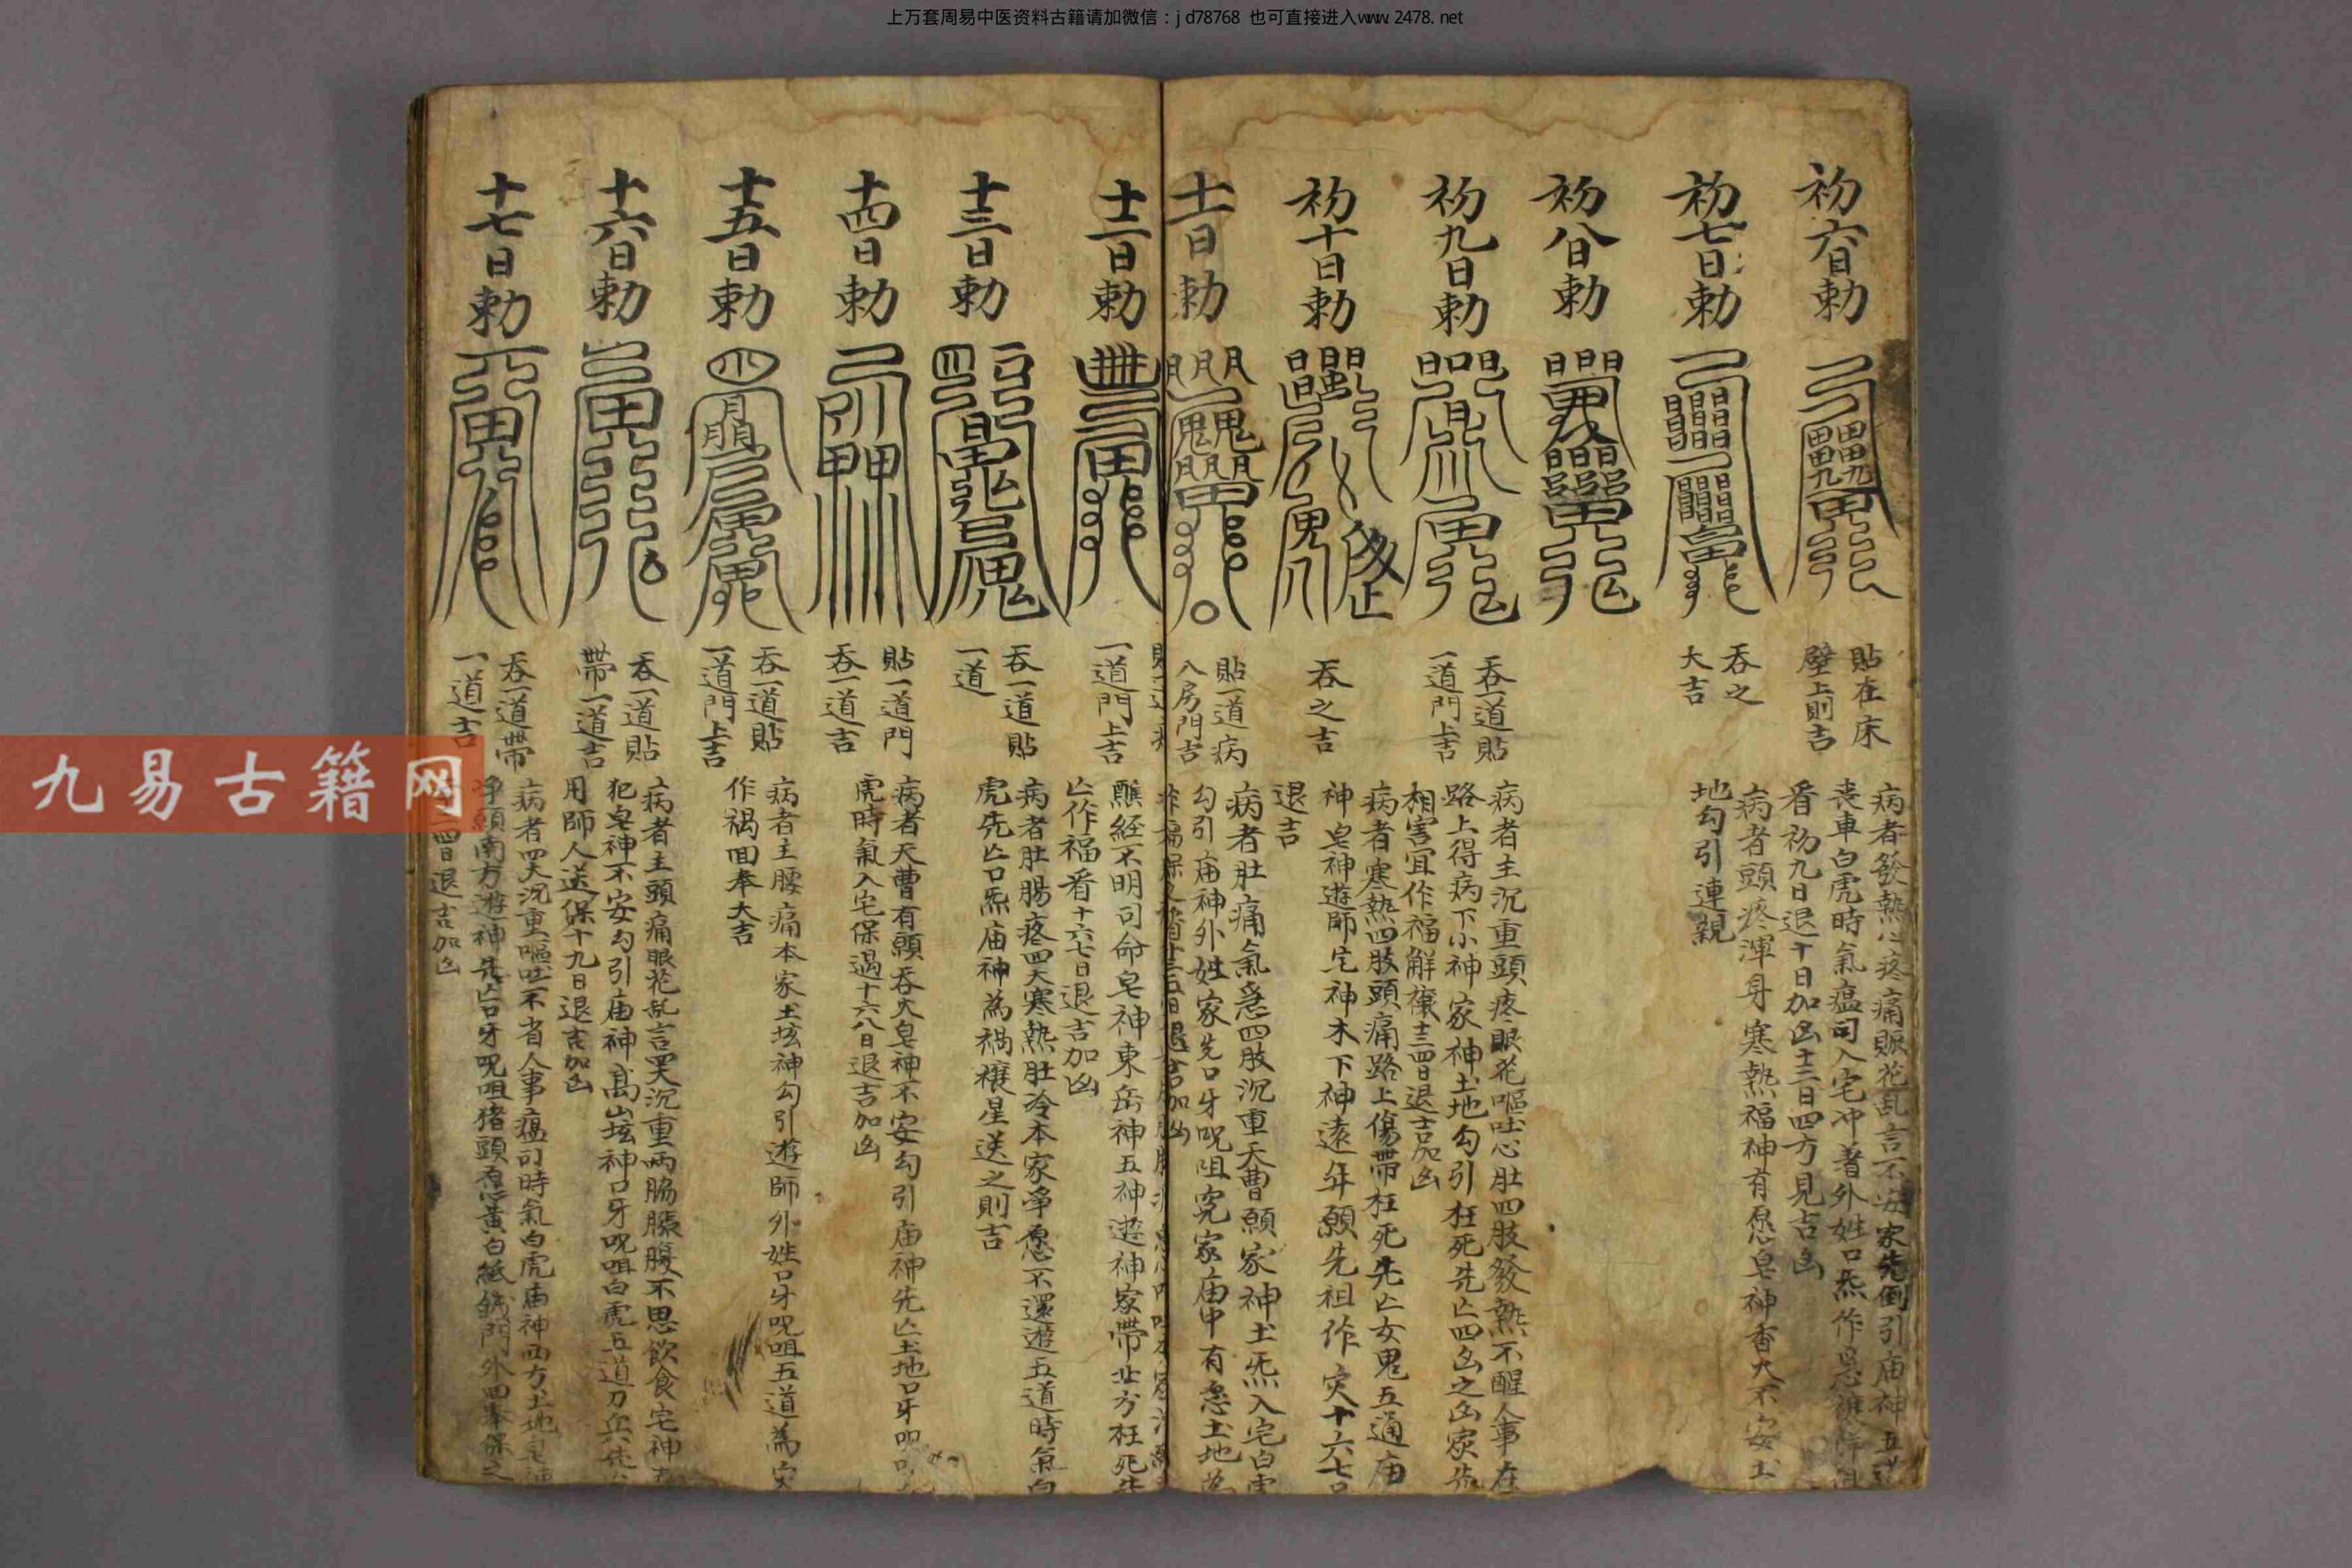 上万套周易中医资料古籍请加微信：jd78768 也可直接进入www.2478.net
初六日勅
貼在床
壁上則吉
病者發熱心疼痛眼花乱言不安家先倒引庙神五
丧車白虎時氣瘟司入宅冲著外姓口炁作
看初九日退十日加凶十三日四方見吉凶
初七日勅
吞之
大吉
病者頭疼渾身寒熱福神有愿皂神香火不安土
地勾引連親
初八日勅
初九日勅
吞一道貼
一道門上吉
病者主沉重頭疼眼花嘔吐心肚四肢發熱不醒人事在
路上得病下小神家神土地勾引枉死先亡四凶之凶家先
相害宜作福解禳十三四日退吉加凶
初十日勅
吞之吉
病者寒熱四肢頭痛路上傷帶枉死先亡女鬼五通庙
神皂神遊師宅神木下神遠年願先祖作灾十六七日
退吉
十一日勅
貼一道病
入房門吉
病者肚痛氣急四肢沉重天曹願家神土炁入宅白虎
勾引庙神外姓家先口牙呪咀究家庙中有愿土地為
十二日勅
一道門上吉
醮経不明司命皂神東岳神五神遊神家帶北方枉死先
亡作福看十六七日退吉加凶
十三日勅
吞一道貼
一道
病者肚腸疼四大寒熱肚冷本家爭愿不還遊五道時氣白
虎先亡口炁庙神為禍禳星送之則吉
十四日勅
貼一道門
吞一道吉
病者天曹有願吞大皂神不安勾引庙神先亡土地口牙呪
虎時氣入宅保過十六八日退吉加凶
十五日勅
吞一道貼
一道門上吉
病者主腰痛本家土坛神勾引遊師外姓口牙呪咀五道為灾
作禍回奉大吉
十六日勅
吞一道貼
帶一道吉
病者主頭痛眼花乱言四大沉重両脇脹腹不思飲食宅神
犯皂神不安勾引庙神高山坛神口牙呪咀白虎五道刀兵先
用師人送保十九日退吉加凶
十七日勅
吞一道帶
一道吉
病者四大沉重嘔吐不省人事瘟司時氣白虎庙神西方土地皂神
爭願南方遊神先亡口牙呪咀猪頭愿黃白紙錢門外四奉保之
四日退吉加凶
九易古籍网